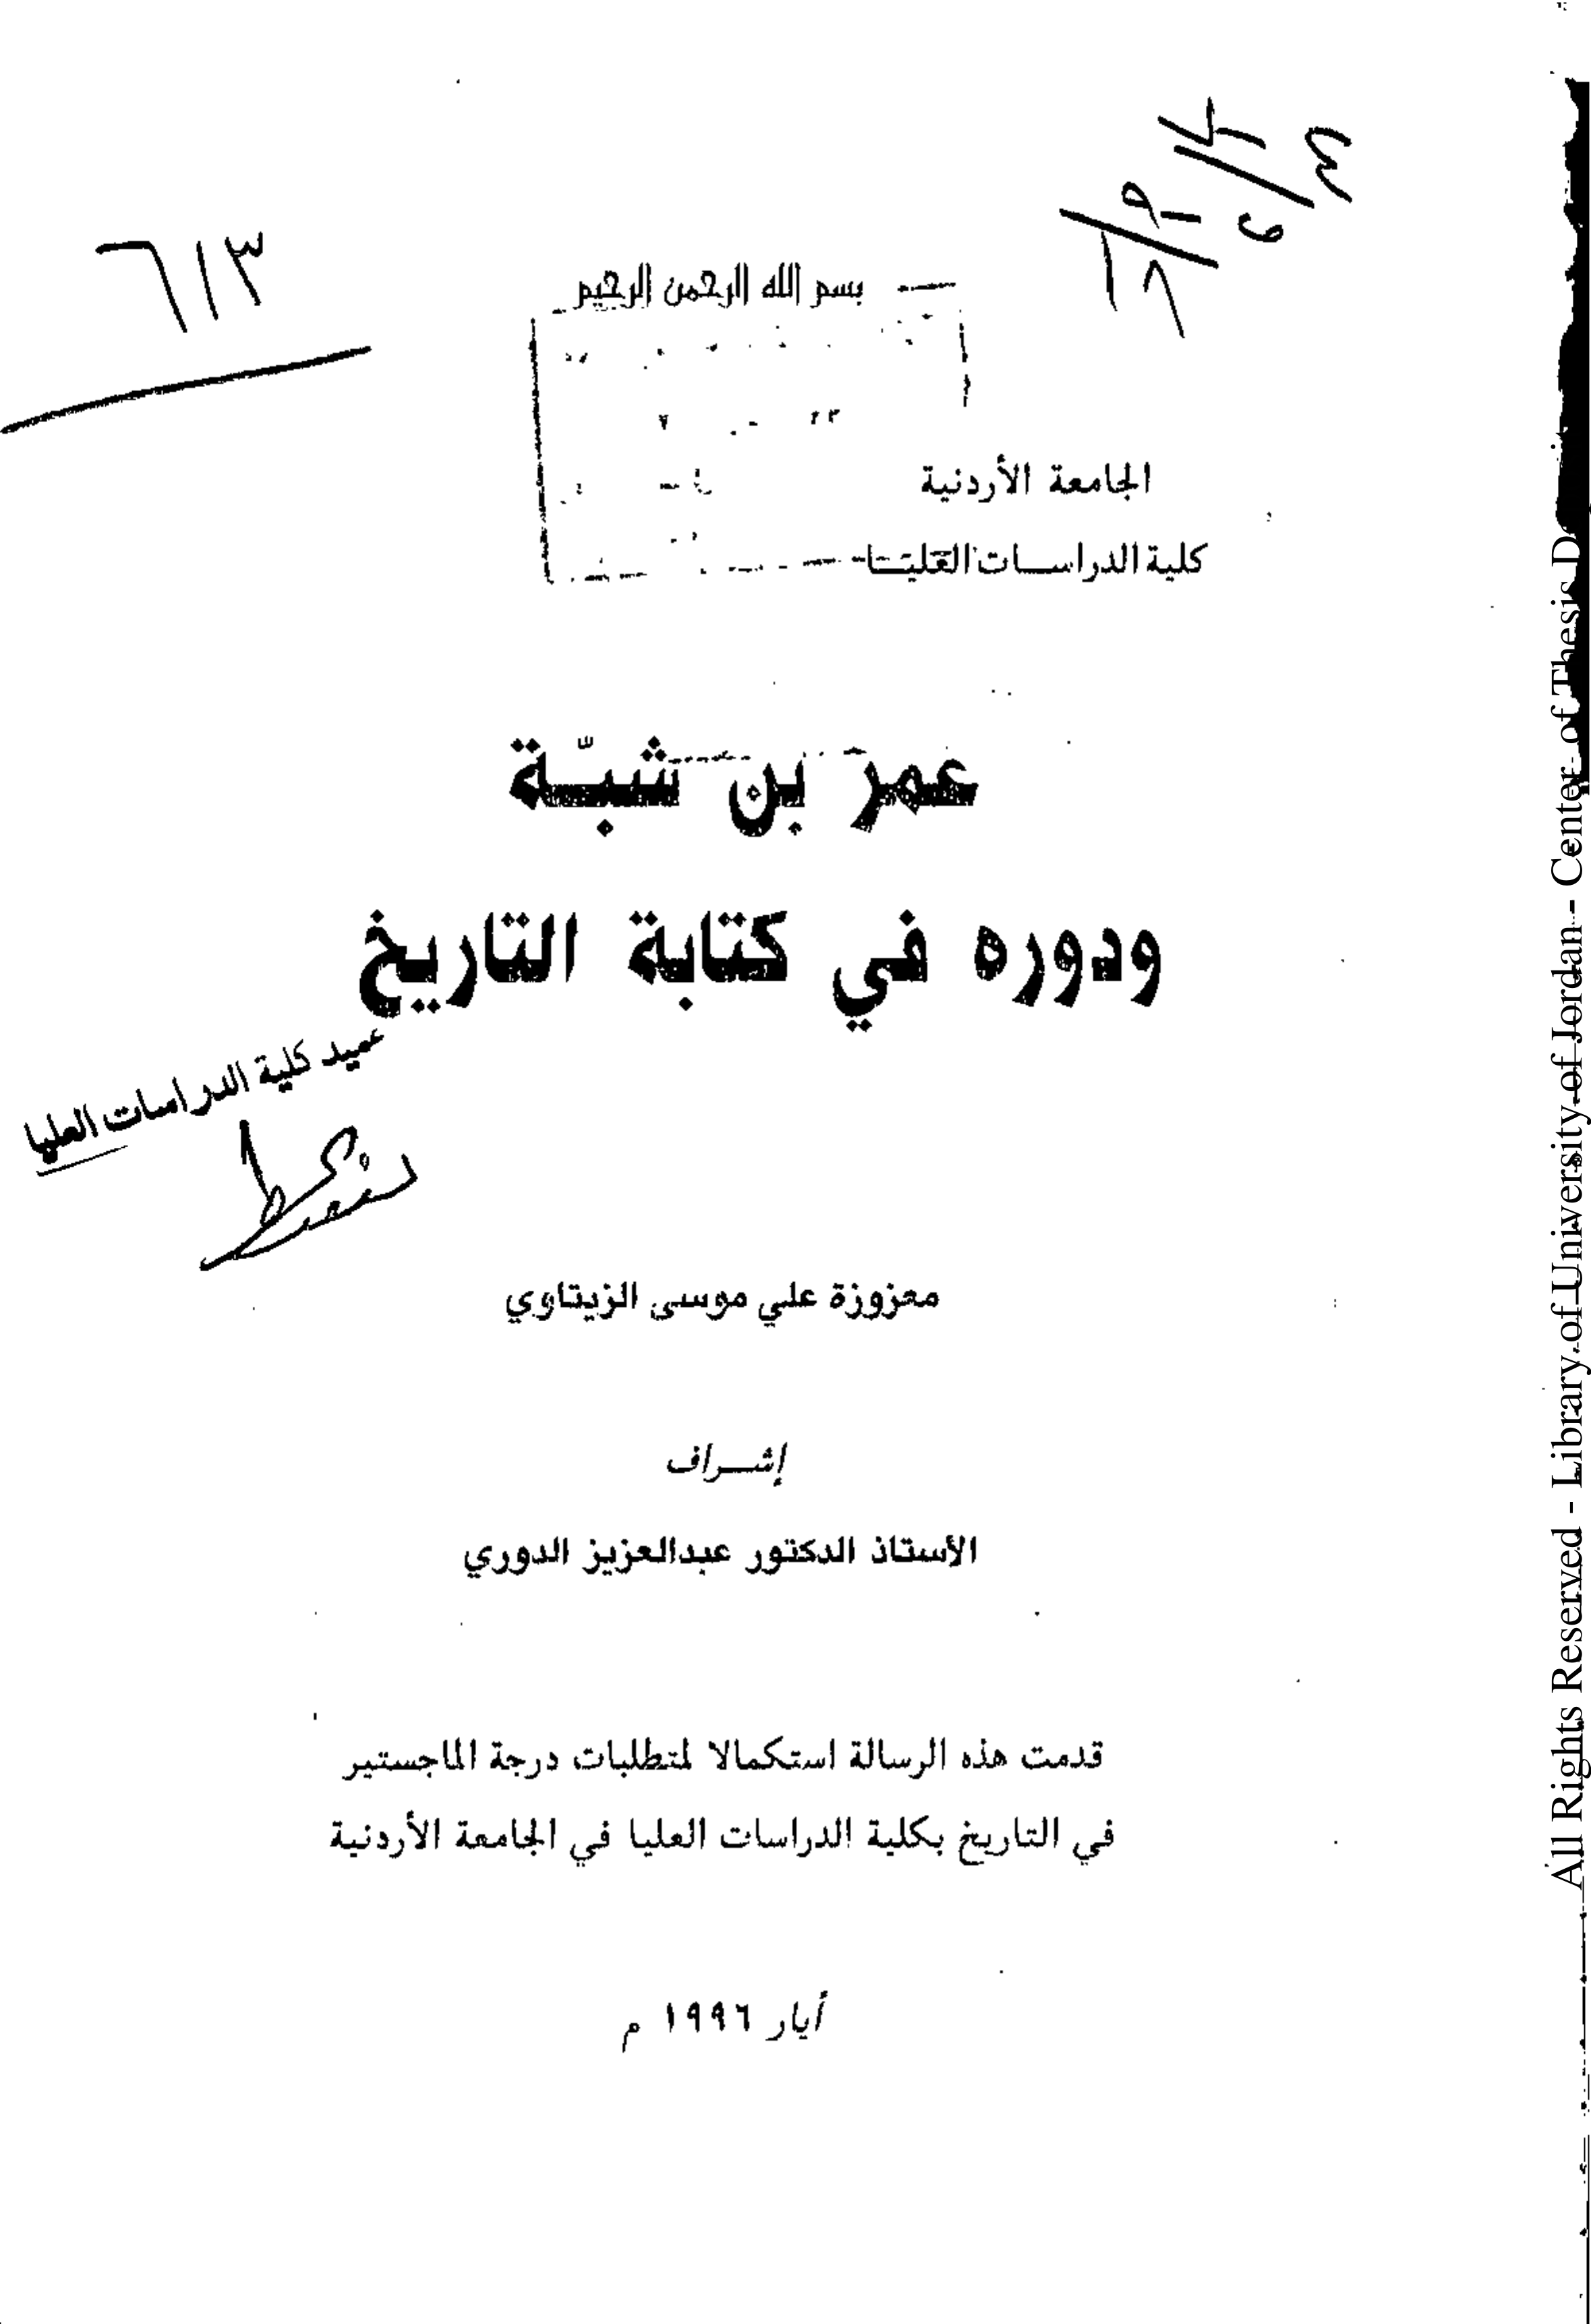 ٦١٣
بسم الله الرحمن الرحيم
الجامعة الأردنية
كلية الدراسات العليا
عمر بن شبّة
ودوره في كتابة التاريخ
عميد كلية الدراسات العليا
معزوزة علي موسى الزيتاوي
إشراف
الأستاذ الدكتور عبدالعزيز الدوري
قدمت هذه الرسالة استكمالا لمتطلبات درجة الماجستير
في التاريخ بكلية الدراسات العليا في الجامعة الأردنية
أيار ١٩٩٦ م
All Rights Reserved - Library of University of Jordan - Center of Thesis